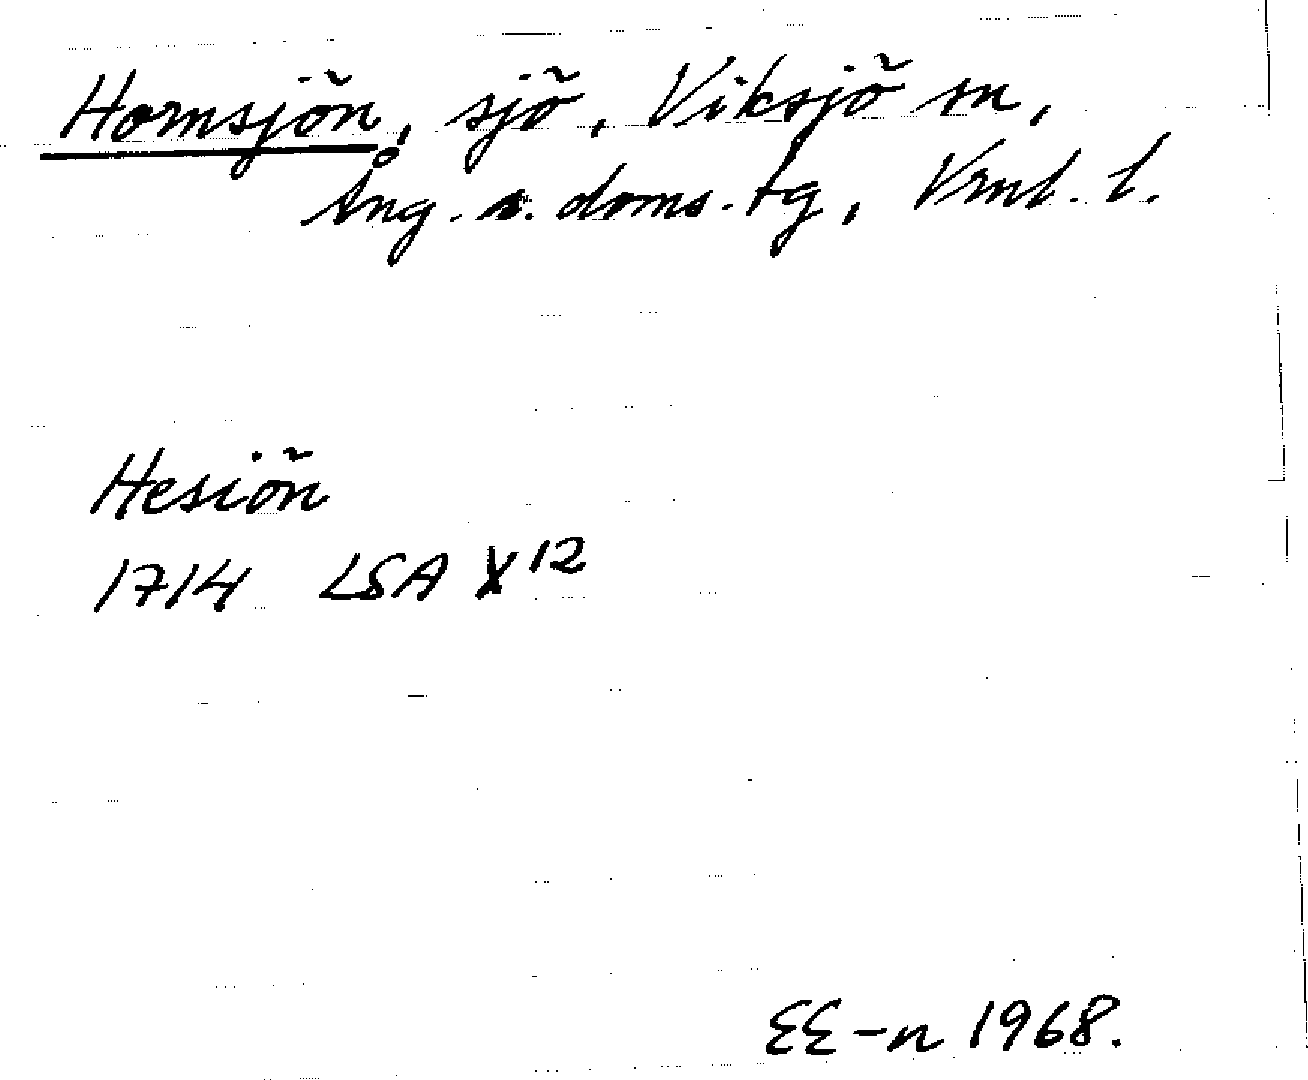 Hornsjön, sjö, Viksjö sn,
Ång. s. doms. tg, Vrnl. l.
Hesiön
1714 LSA X 12
EE-n 1968.